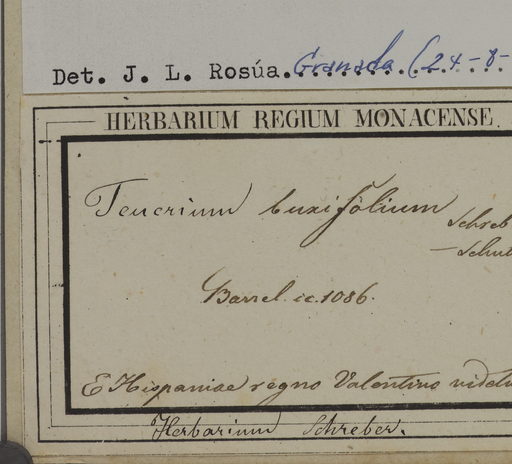 Det. J. L. Rosúa. Granada (24-8-
HERBARIUM REGIUM MONACENSE.
Teucrium buxifolium Schreb
Barrel. ic. 1086.
E Hispaniae regno Valentino
Herbarium Schreber.